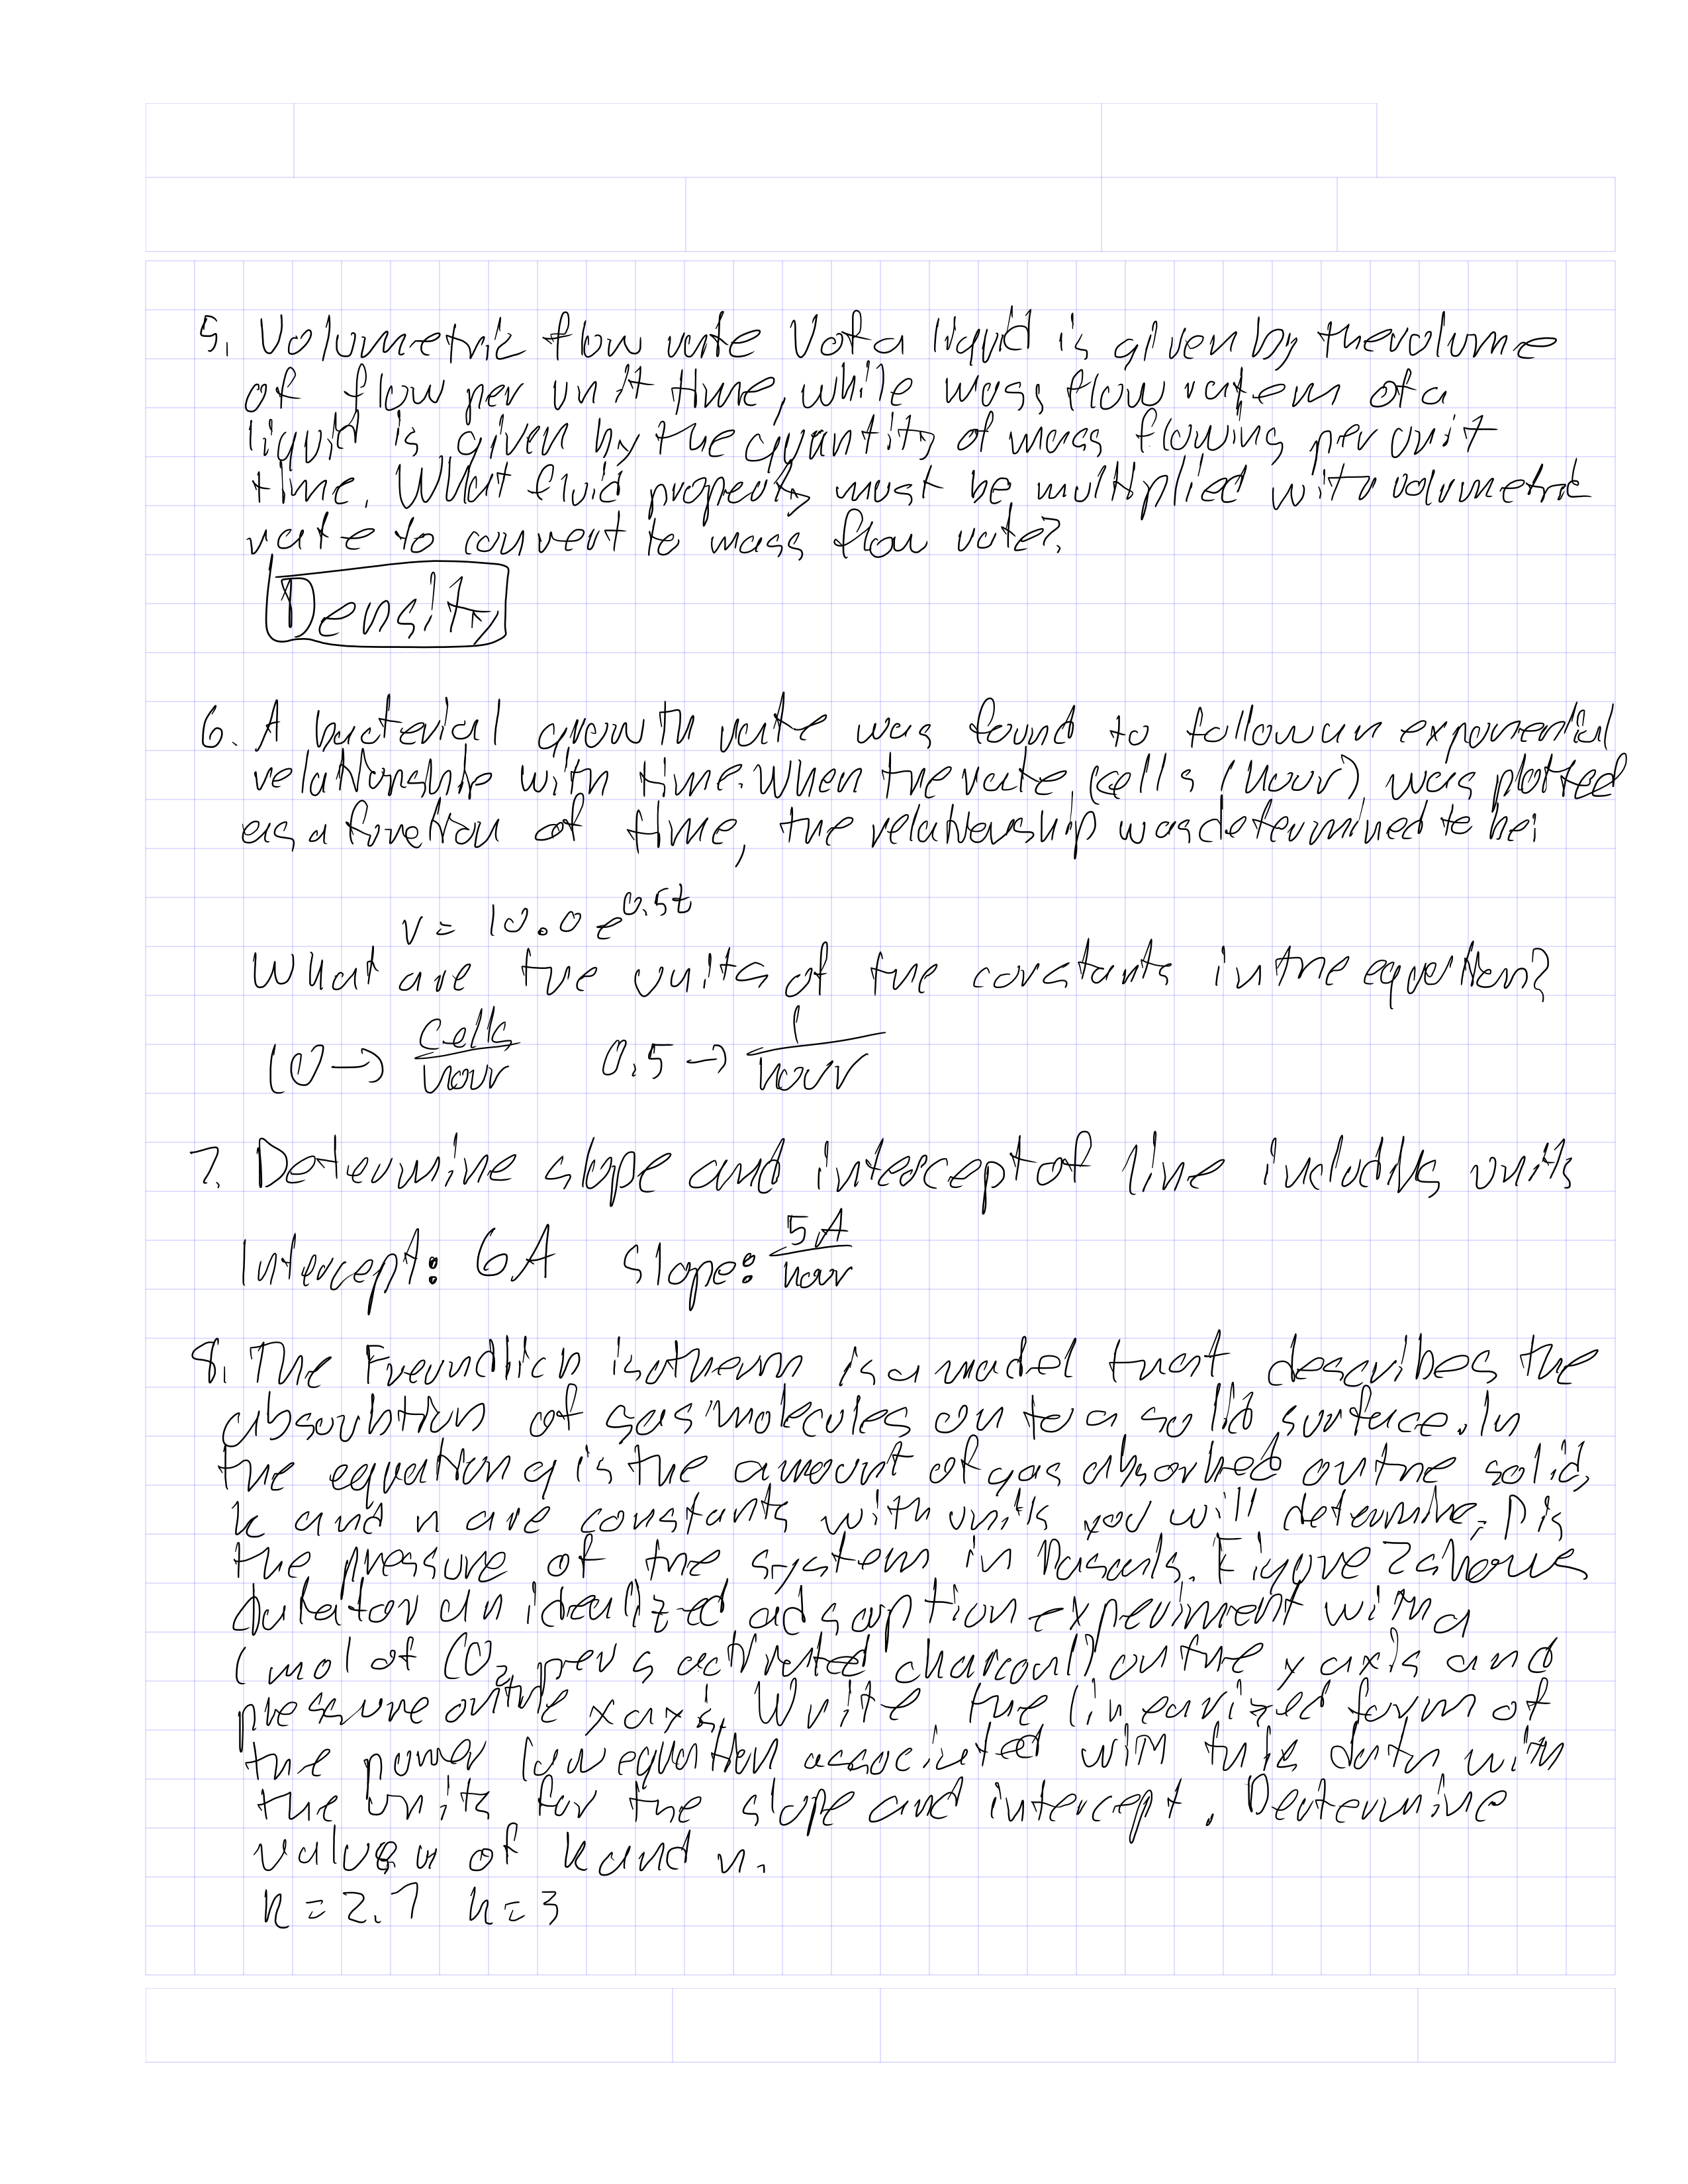 5. Volumetric flow rate V of a liquid is given by the volume
of flow per unit time, while mass flow rate m of a
liquid is given by the quantity of mass flowing per unit
time. What fluid property must be multiplied with volumetric
rate to convert to mass flow rate?
Density
6. A bacterial growth rate was found to follow an exponential
relationship with time. When the rate (cells / hour) was plotted
as a function of time, the relationship was determined to be:
r = 10.0 e^0.5t
What are the units of the constants in the equation?
10 → cells/hour 0.5 → 1/hour
7. Determine slope and intercept of line including units
Intercept: 6A Slope: 5A/hour
8. The Freundlich isotherm is a model that describes the
absorbtion of gas molecules on to a solid surface. In
the equation q is the amount of gas absorbed on the solid,
k and n are constants with units you will determine, P is
the pressure of the system in Pascals. Figure 2 shows
data for an idealized adsorption experiment with q
(mol of CO2 per g activated charcoal) on the y axis and
pressure on the x axis. Write the linearized form of
the power law equation associated with this data with
the units for the slope and intercept. Determine
values of k and n.
k = 2.7 n = 3